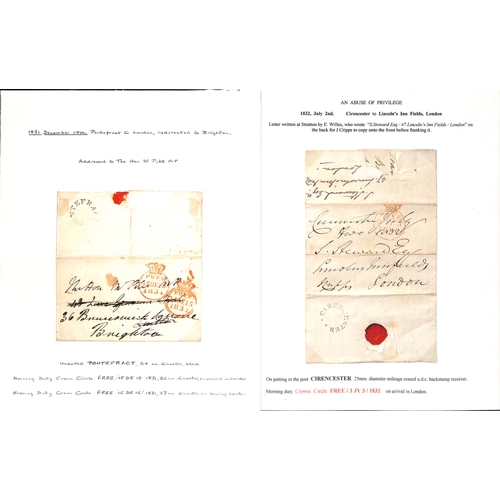 1831, December 14th, Pontefract to London, redirected to Brighton.
Addressed to The Hon W Pitt MP
NTEFRAC
FREE
1831
36 Brunswick Square
Brighton
Undated PONTEFRACT, 24 mm diameter, blue.
Morning Duty Crown Circle FREE / 15 DE 15 / 1831, 26mm diameter, on arrival in London
Evening Duty Crown Circle FREE 15 DE 15 / 1831, 23mm diameter, on leaving London
AN ABUSE OF PRIVILEGE
1832, July 2nd. Cirencester to Lincoln's Inn Fields, London
Letter written at Stratton by E. Willes, who wrote "S.Steward Esq / 47 Lincoln's Inn Fields / London" on
the back for J Cripps to copy onto the front before franking it.
London
S. Steward Esq
Cirencester July
two 1832
S. Steward Esq
Lincolns Inn fields
London
CIRENCESTER
On putting in the post CIRENCESTER 25mm. diameter mileage erased u.d.c. backstamp receiver.
Morning duty Crown Circle FREE / 3 JY 3 / 1832 on arrival in London.